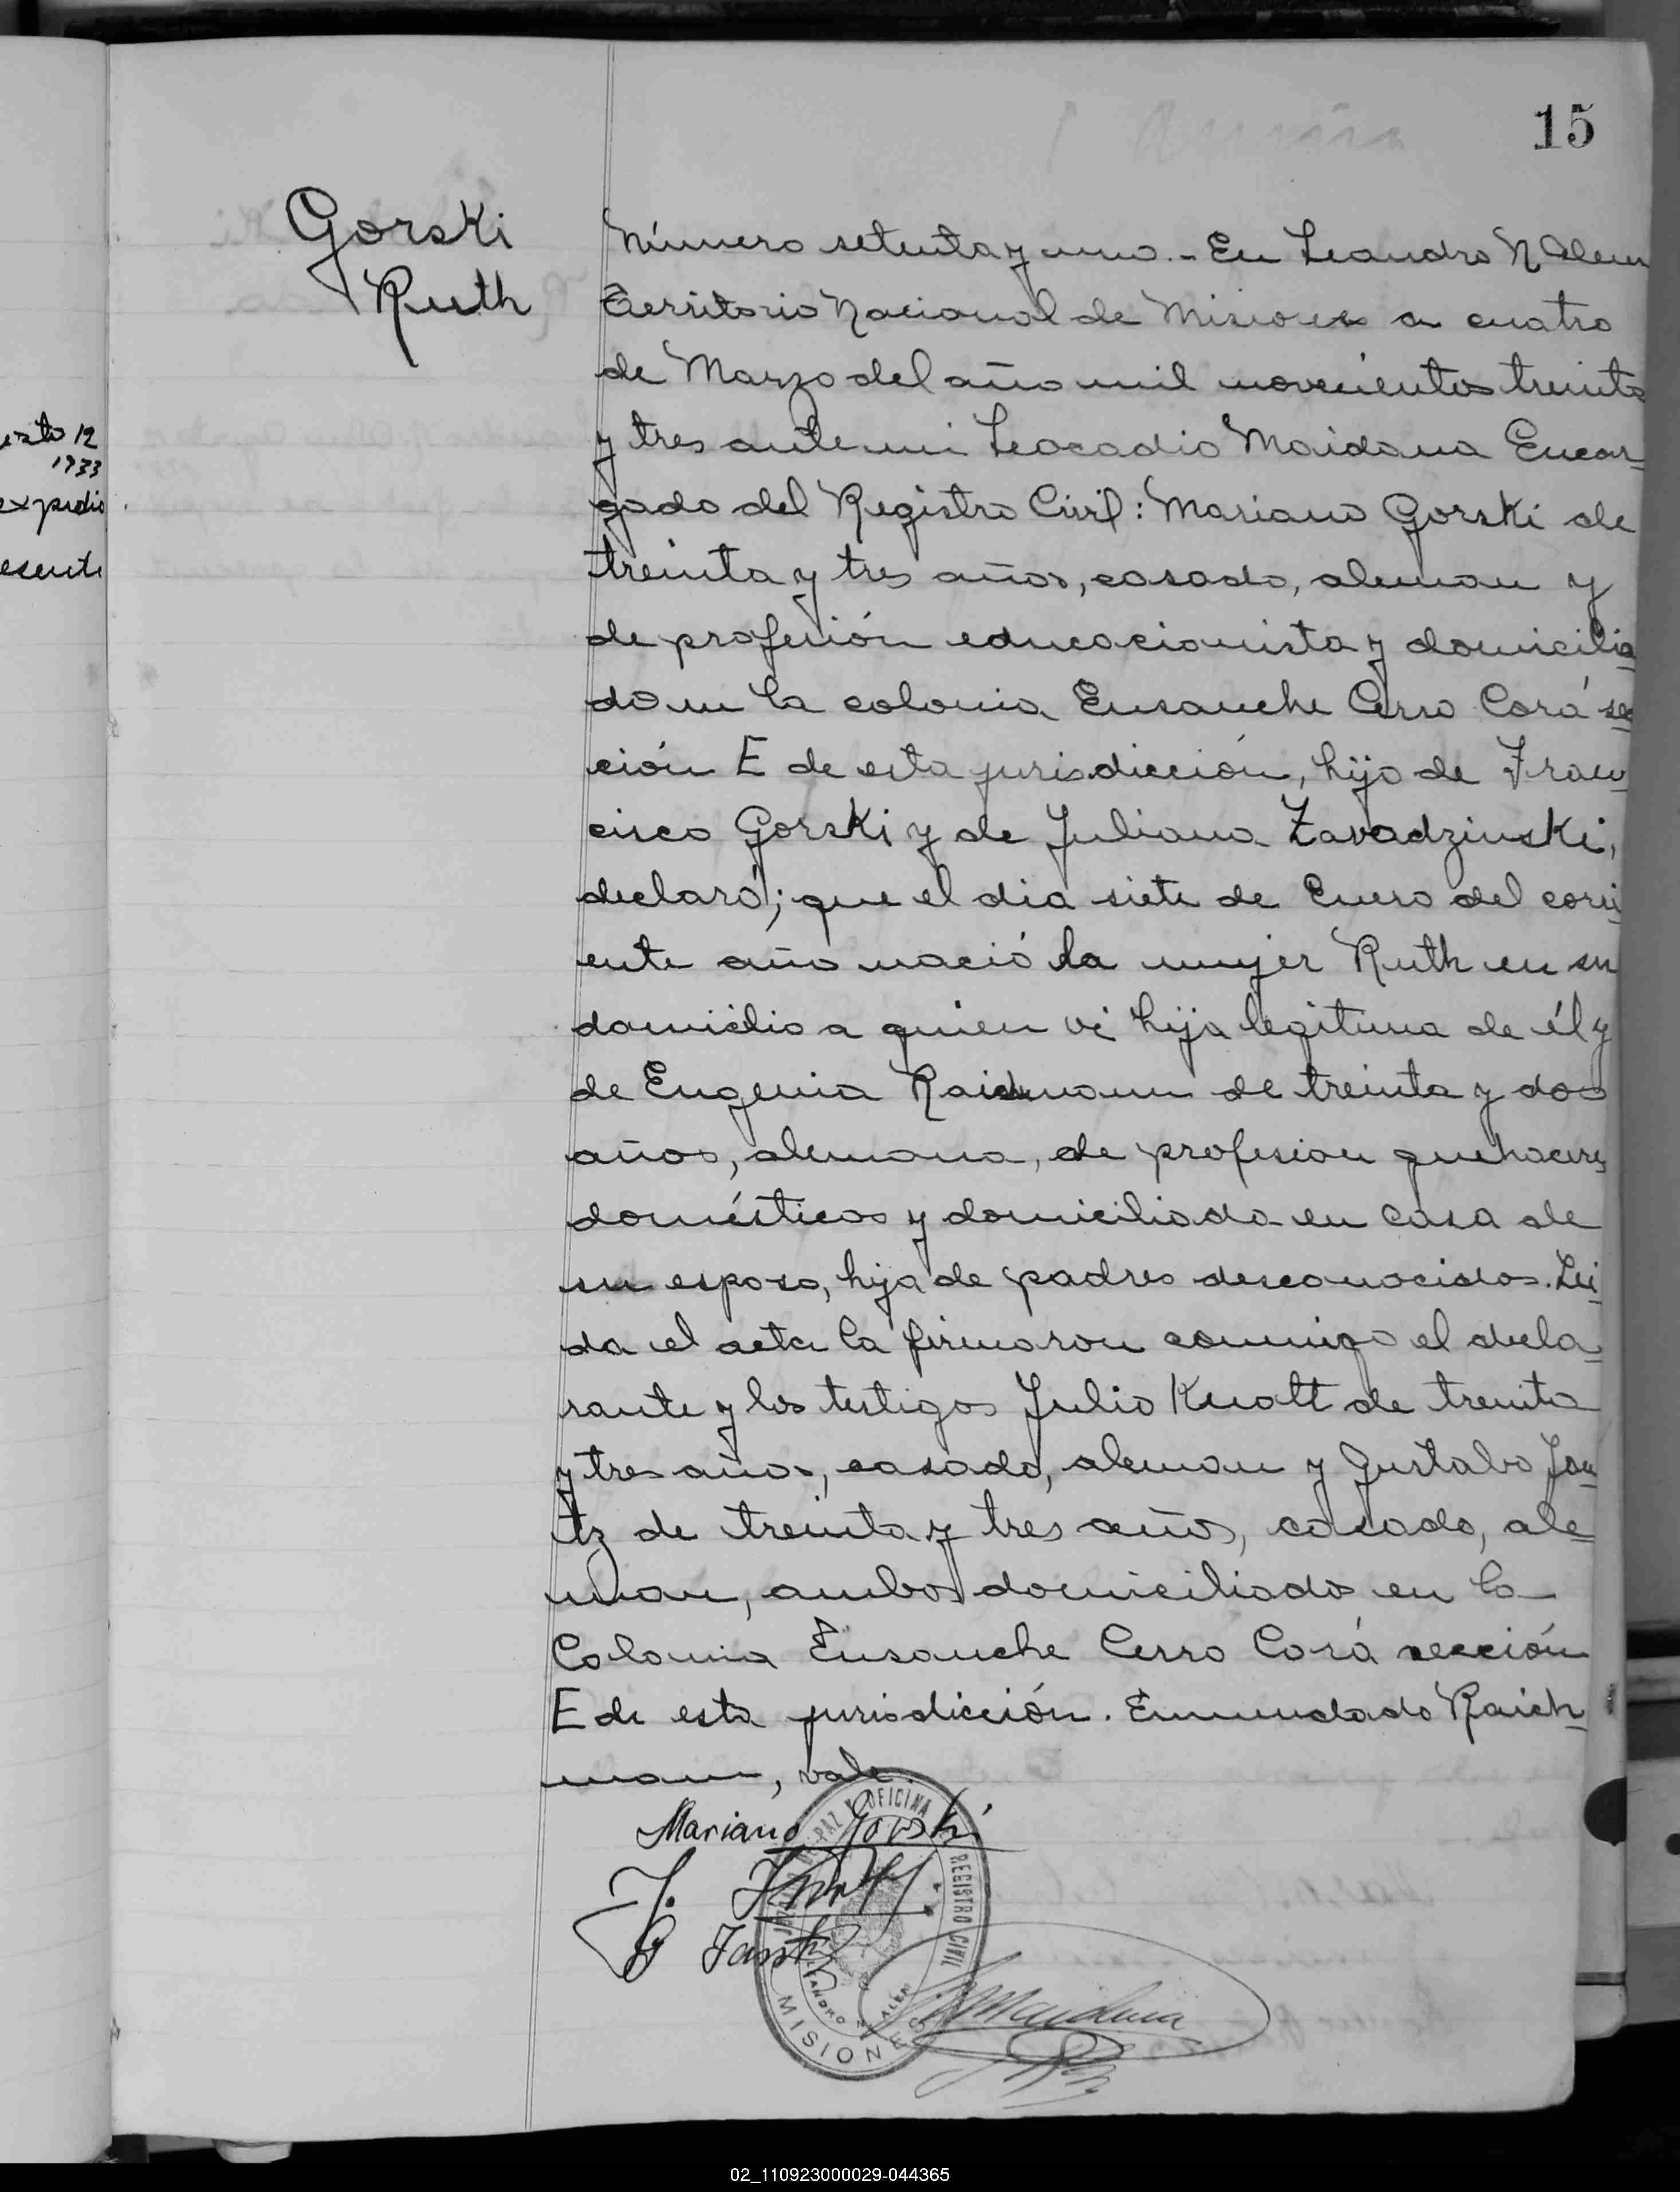 15
Gorski
Ruth
Número setenta y uno.- En Leandro N Alem
Territorio Nacional de Misiones a cuatro
de Marzo del año mil novecientos treinta
y tres ante mi Leocadio Maidana Encar-
gado del Registro Civil: Mariano Gorski de
treinta y tres años, casado, aleman y
de profesión educacionista y domicilia
do en la colonia Ensanche Cerro Corá sec
ción E de esta jurisdicción, hijo de Fran
cisco Gorski y de Juliana Zavadzinski,
declaró; que el dia siete de Enero del corri
ente año nació la mujer Ruth en su
domicilio a quien vi hija legitima de él y
de Eugenia Raichmann de treinta y dos
años, alemana, de profesion quehaceres
domésticos y domiciliada en casa de
su esposo, hija de padres desconocidos. Lei
da el acta la firmaron conmigo el decla-
rante y los testigos Julio Knott de treinta
y tres años, casado, aleman y Gustabo Jan
tz de treinta y tres años, casado, ale
man, ambos domiciliados en la
Colonia Ensanche Cerro Corá sección
E de esta jurisdicción. Enmendado Raich-
mann, vale.
Mariano Gorski
J. Knott
G Jantz
Maidana
PAZ Y OFICINA REGISTRO CIVIL
LEANDRO N. ALEM
MISIONES
esto 12
1933
expidió
esente
02_110923000029-044365